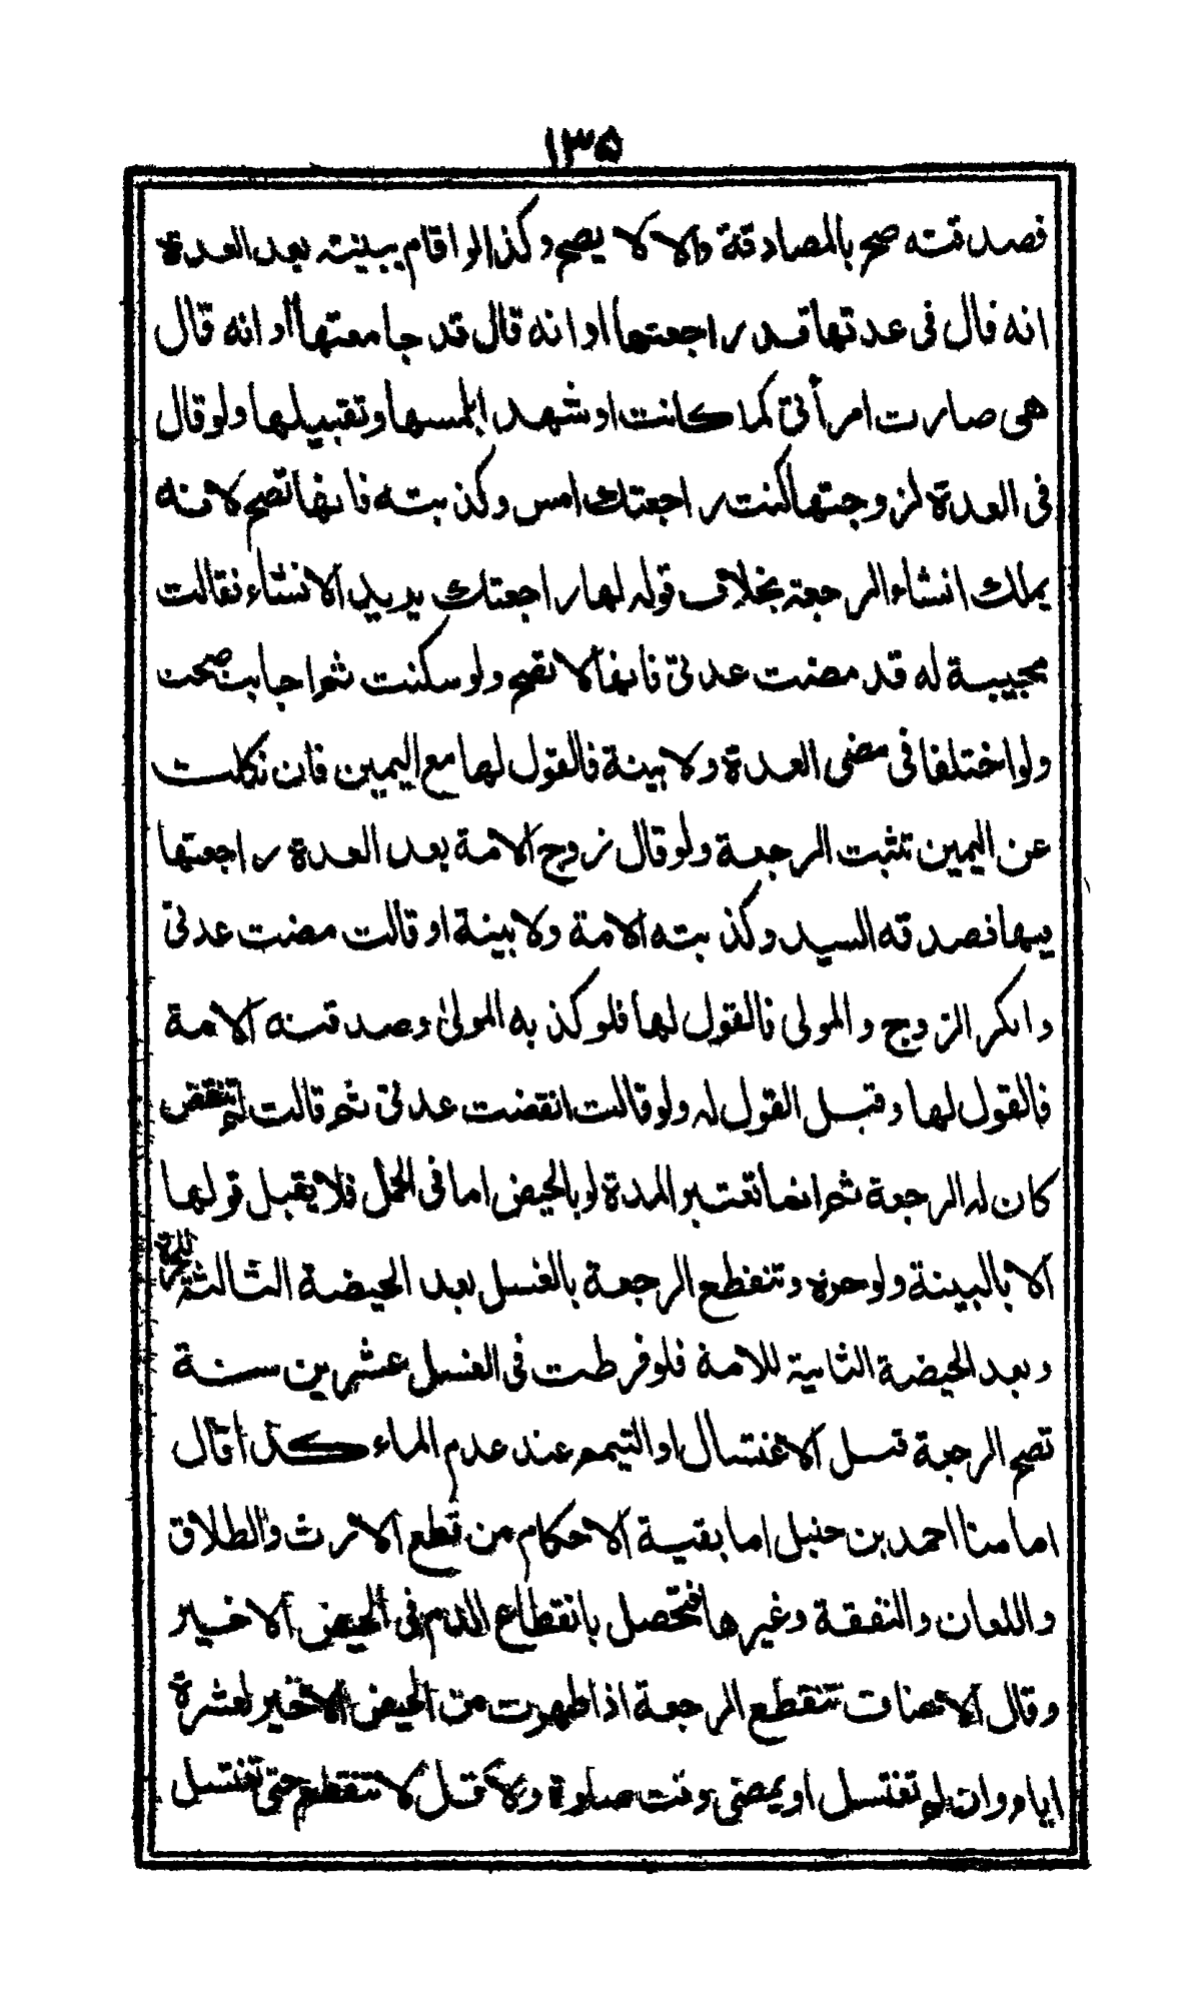 ١٣٥
فصدقته صح بالمصادقة والا لا يصح وكذا لو اقام ببينته بعد العدة
انه قال فى عدتها قد راجعتها او انه قال قد جامعتها او انه قال
هى صارت امرأتى كما كانت او شهدا بلمسها وتقبيلها ولو قال
فى العدة لزوجتها كنت راجعتك امس وكذبته فانها تصح لانه
يملك انشاء الرجعة بخلاف قوله لها راجعتك يريد الانشاء فقالت
مجيبة له قد مضت عدتى فانها لا تصح ولو سكتت ثم اجابت صحت
ولو اختلفا فى مضى العدة ولا بينة فالقول لها مع اليمين فان نكلت
عن اليمين تثبت الرجعة ولو قال زوج الامة بعد العدة راجعتها
فيها فصدقه السيد وكذبته الامة ولا بينة او قالت مضت عدتى
وانكر الزوج والمولى فالقول لها فلو كذبه المولى وصدقته الامة
فالقول لها وقيل القول له ولو قالت انقضت عدتى ثم قالت لم تنقض
كان له الرجعة ثم انما تعتبر المدة لو بالحيض اما فى الحمل فلا يقبل قولها
الا بالبينة ولو حرة وتنقطع الرجعة بالغسل بعد الحيضة الثالثة للحرة
وبعد الحيضة الثانية للامة فلو فرطت فى الغسل عشرين سنة
تصح الرجعة قبل الاغتسال او التيمم عند عدم الماء كذا قال
امامنا احمد بن حنبل اما بقية الاحكام من قطع الارث والطلاق
واللعان والنفقة وغيرها فتحصل بانقطاع الدم فى الحيض الاخير
وقال الاحناف تنقطع الرجعة اذا طهرت من الحيض الاخير لعشرة
ايام وان لم تغتسل او يمضى وقت صلوة ولاقل لا تنقطع حتى تغتسل